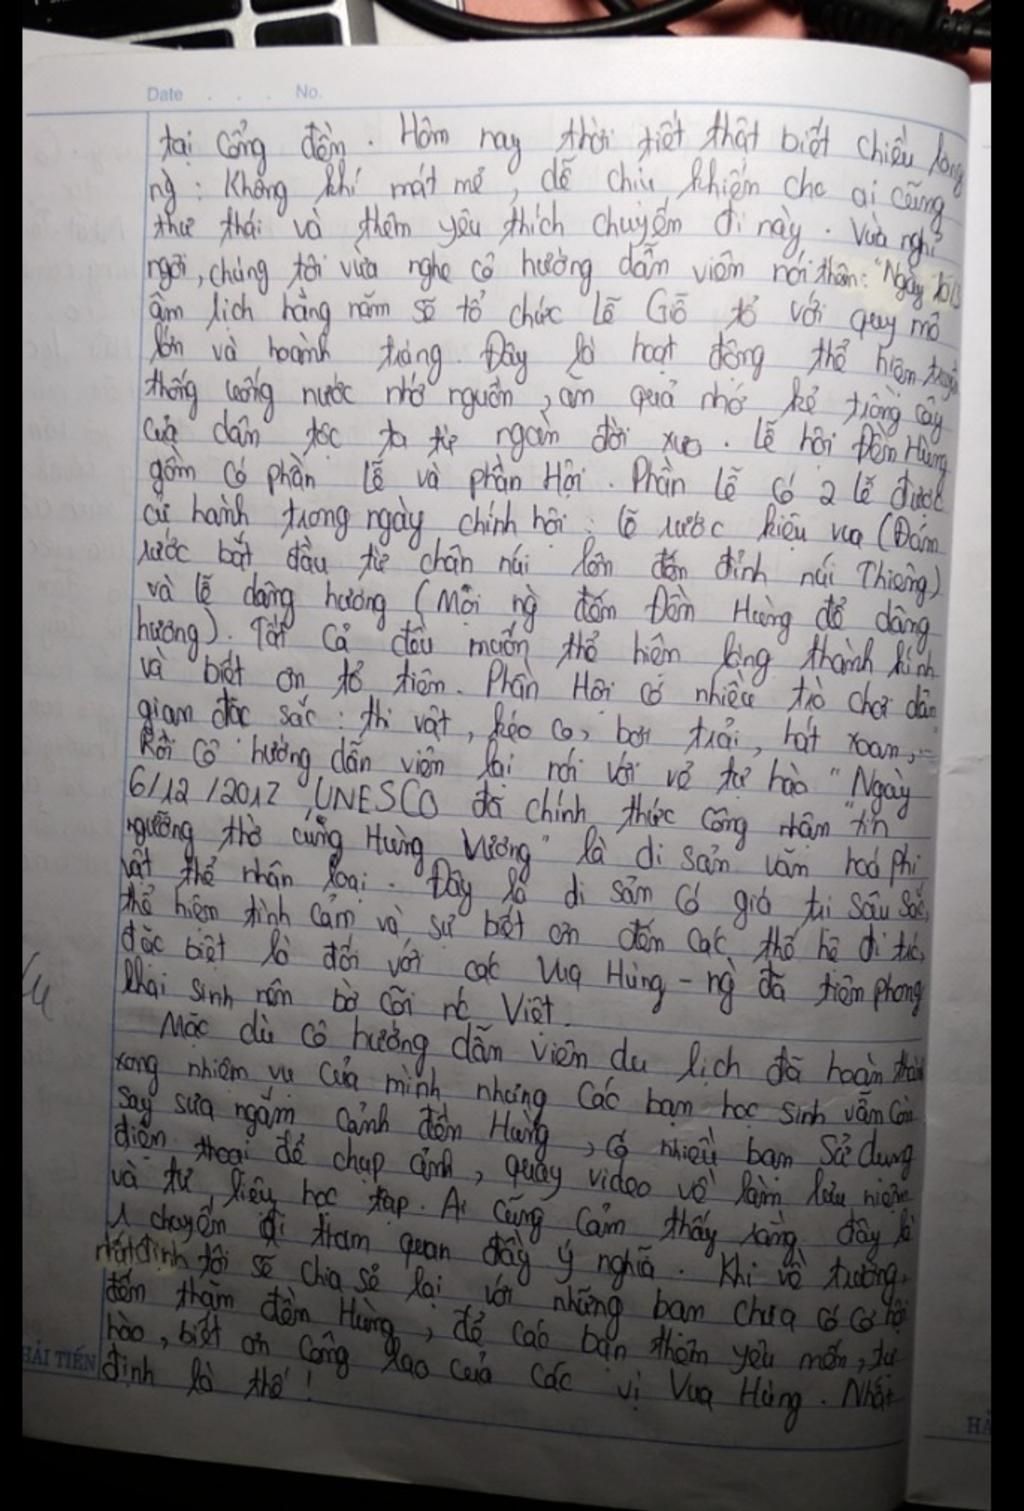 Date . . . No.
tại cổng đền. Hôm nay thời tiết thật biết chiều lòng
ng̀: Không khí mát mẻ, dễ chịu khiến cho ai cũng
thư thái và thêm yêu thích chuyến đi này. Vừa nghỉ
ngơi, chúng tôi vừa nghe cô hướng dẫn viên nói thêm: "Ngày 10/3
âm lịch hằng năm sẽ tổ chức Lễ Giỗ tổ với quy mô
lớn và hoành tráng. Đây là hoạt động thể hiện truyền
thống uống nước nhớ nguồn, ăn quả nhớ kẻ trồng cây
của dân tộc ta từ ngàn đời xưa. Lễ hội Đền Hùng
gồm có phần Lễ và phần Hội. Phần Lễ có 2 lễ được
cử hành trong ngày chính hội: lễ rước kiệu vua (Đám
rước bắt đầu từ chân núi lên đến đỉnh núi Thiêng)
và lễ dâng hương (Mọi ng̀ đến Đền Hùng để dâng
hương). Tất cả đều muốn thể hiện lòng thành kính
và biết ơn tổ tiên. Phần Hội có nhiều trò chơi dân
gian đặc sắc: thi vật, kéo co, bơi trải, hát xoan,...
Rồi cô hướng dẫn viên lại nói với vẻ tự hào "Ngày
6/12/2012, UNESCO đã chính thức công nhận "tín
ngưỡng thờ cúng Hùng Vương" là di sản văn hoá phi
vật thể nhân loại. Đây là di sản có giá trị sâu sắc,
thể hiện tình cảm và sự biết ơn đến các thế hệ đi trc,
đặc biệt là đối với các Vua Hùng - ng̀ đã tiên phong
khai sinh nên bờ cõi nc Việt.
Mặc dù cô hướng dẫn viên du lịch đã hoàn thành
xong nhiệm vụ của mình nhưng các bạn học sinh vẫn còn
say sưa ngắm cảnh đền Hùng, có nhiều bạn sử dụng
điện thoại để chụp ảnh, quay video về làm lưu niệm
và tư liệu học tập. Ai cũng cảm thấy rằng đây là
1 chuyến đi tham quan đầy ý nghĩa. Khi về trường,
nhất định tôi sẽ chia sẻ lại với những bạn chưa có cơ hội
đến thăm đền Hùng, để các bạn thêm yêu mến, tự
hào, biết ơn công lao của các vị Vua Hùng. Nhất
định là thế!
HẢI TIẾN